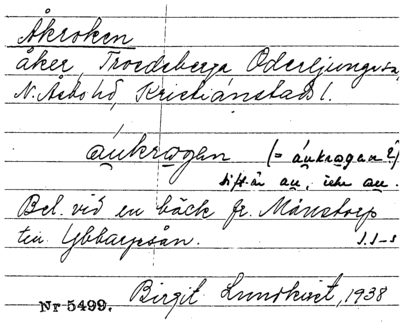 Åkroken
åker, Troedsberga, Oderljunga sn,
N. Åsbo hd, Kristianstads l.
áukrogan (= áukrogan?)
au, icke au.
Bel. vid en bäck fr. Månstorp
till Ybbarpsån.
Nr 5499. Birgit Lundkvist, 1938